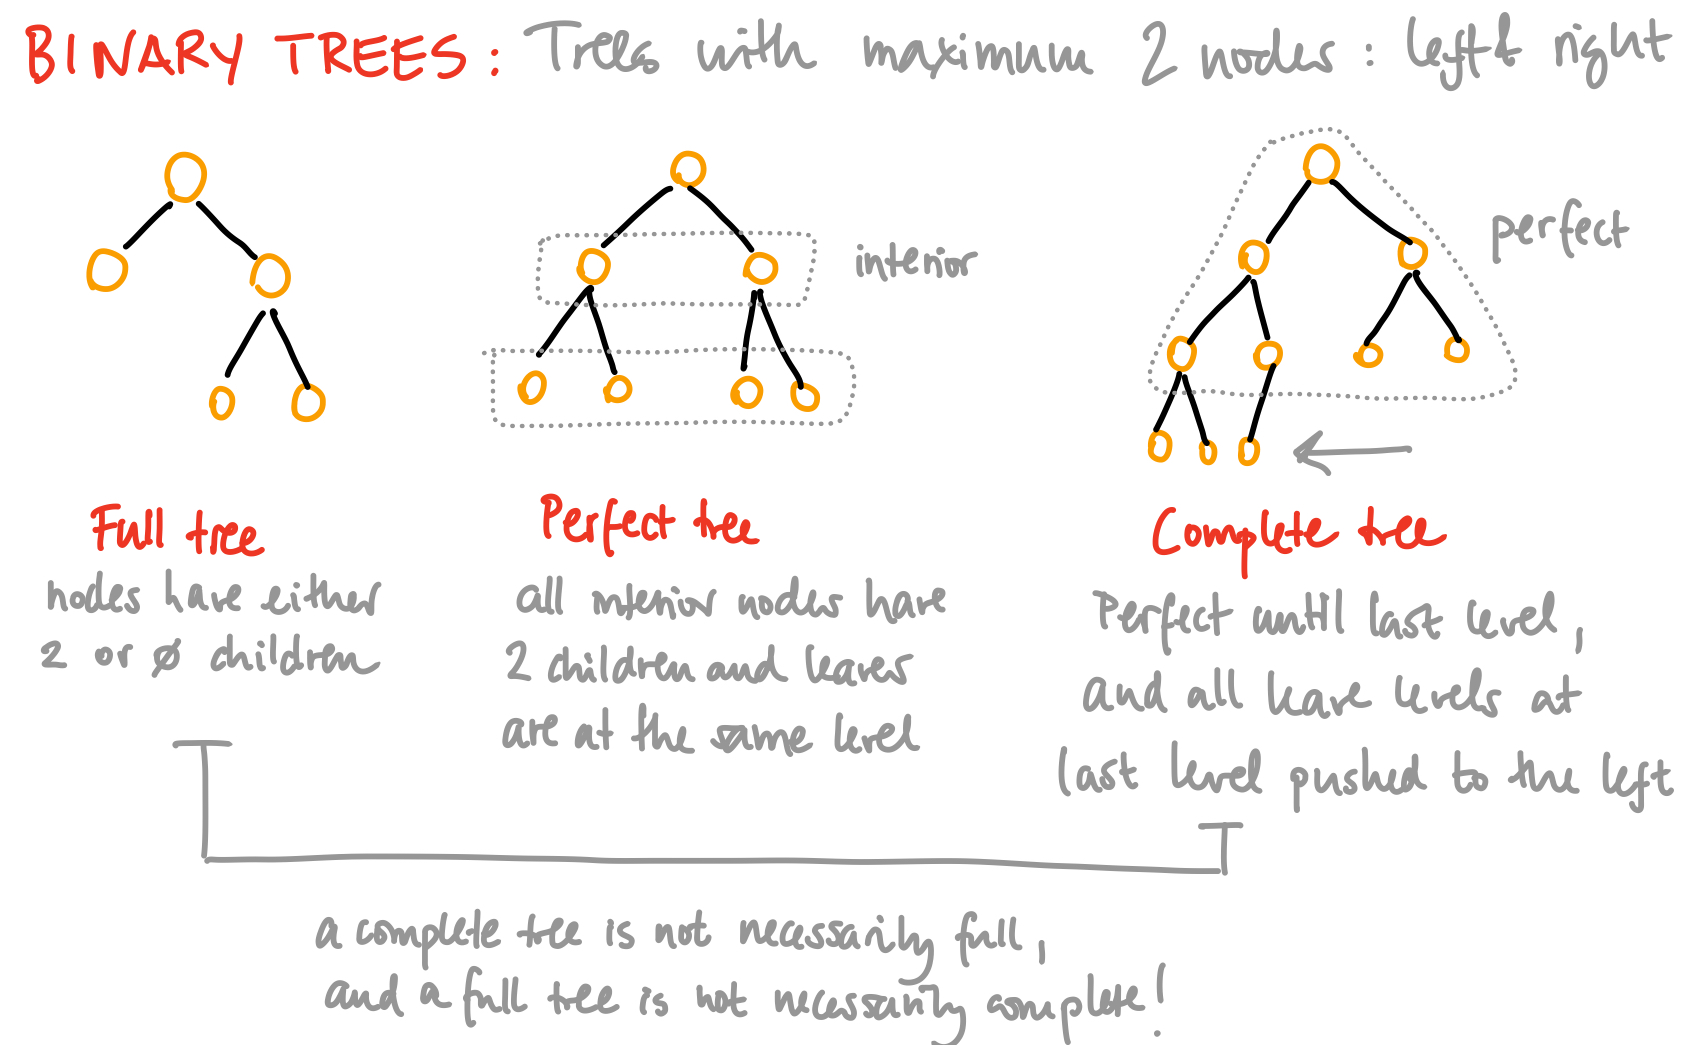 BINARY TREES: Trees with maximum 2 nodes: left & right
interior
perfect
Full tree
nodes have either
2 or ø children
Perfect tree
all interior nodes have
2 children and leaves
are at the same level
Complete tree
Perfect until last level,
and all leave levels at
last level pushed to the left
a complete tree is not necessarily full,
and a full tree is not necessarily complete!